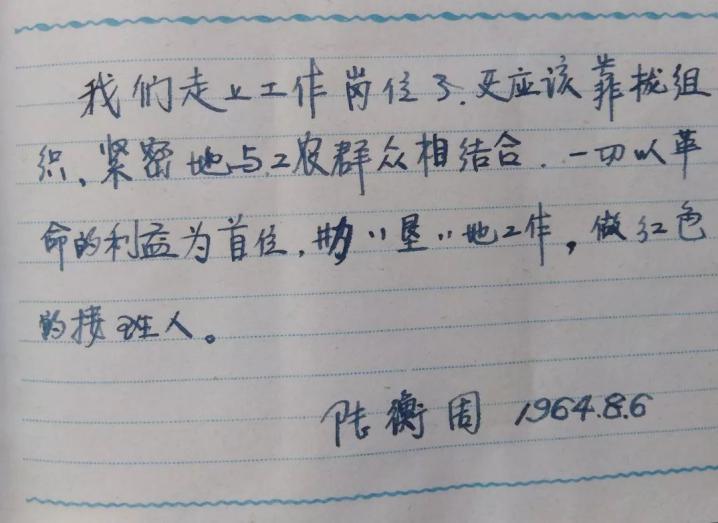 我们走上工作岗位了．更应该靠拢组
织、紧密地与工农群众相结合．一切以革
命的利益为首位，勤〃垦〃地工作，做红色
的接班人。
陆衡周 1964.8.6